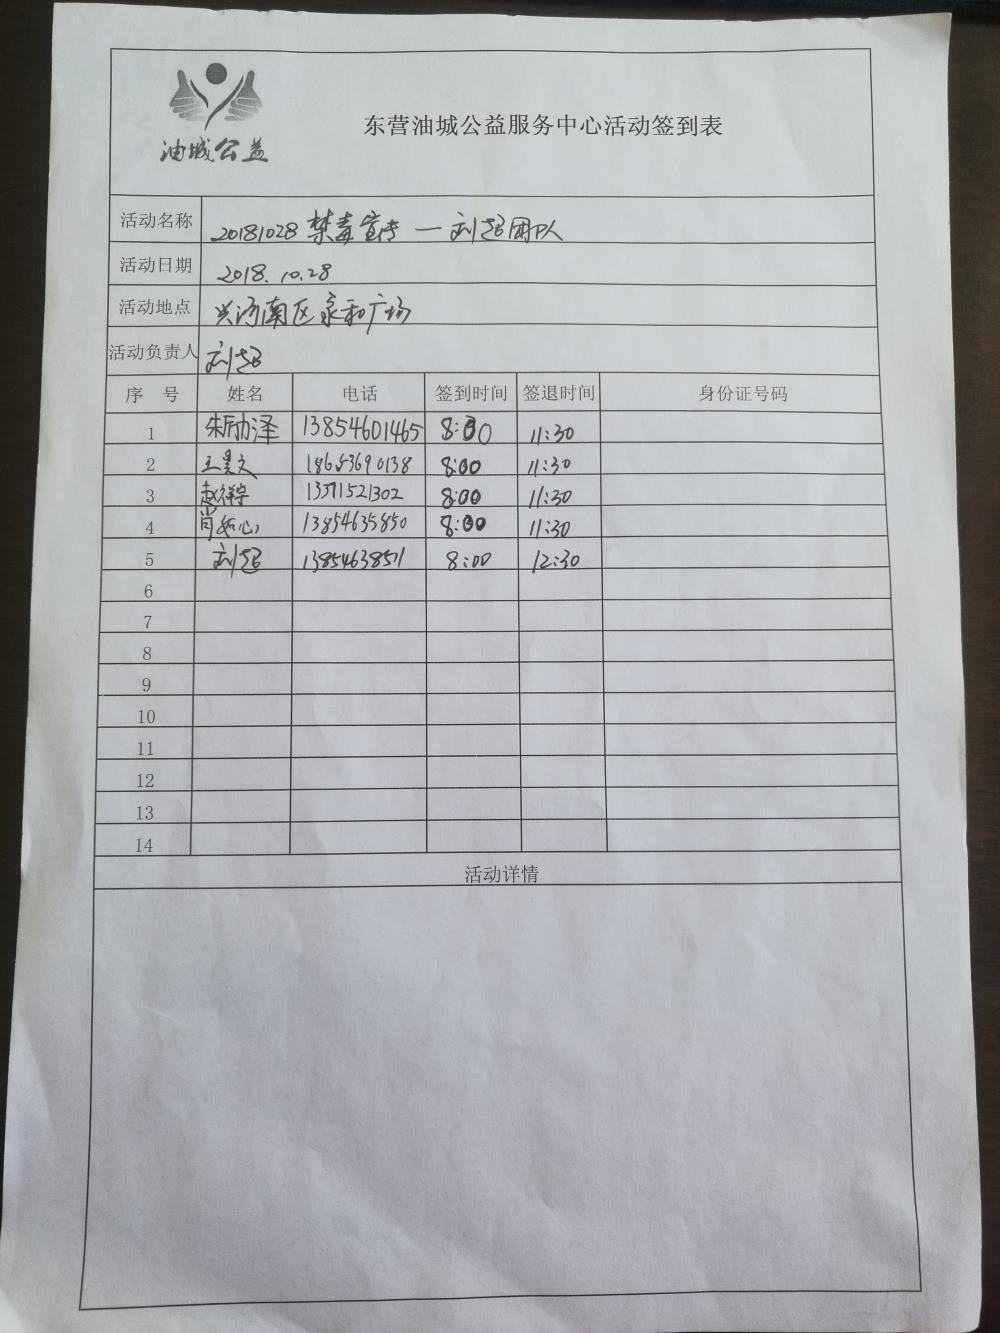 油城公益
东营油城公益服务中心活动签到表
活动名称 20181028 禁毒宣传 — 刘超团队
活动日期 2018.10.28
活动地点 兴河南区泰和广场
活动负责人 刘超
序 号 姓名 电话 签到时间 签退时间 身份证号码
1 朱励泽 13854601465 8:00 11:30
2 王昊文 18653690138 8:00 11:30
3 赵祥宇 13371521302 8:00 11:30
4 尚如心 13854635850 8:00 11:30
5 刘超 13854638511 8:00 12:30
6
7
8
9
10
11
12
13
14
活动详情